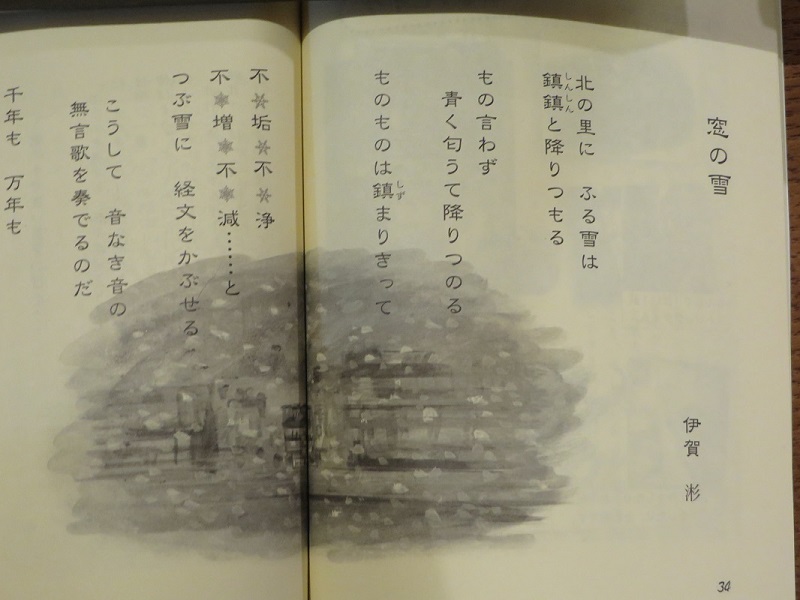 窓の雪
伊賀 涁
北の里に ふる雪は
鎮鎮と降りつもる
しんしん
もの言わず
青く匂うて降りつのる
ものものは鎮まりきって
しず
不✲垢✲不✲浄
不✲増✲不✲減……と
つぶ雪に 経文をかぶせる
こうして 音なき音の
無言歌を奏でるのだ
千年も 万年も
34